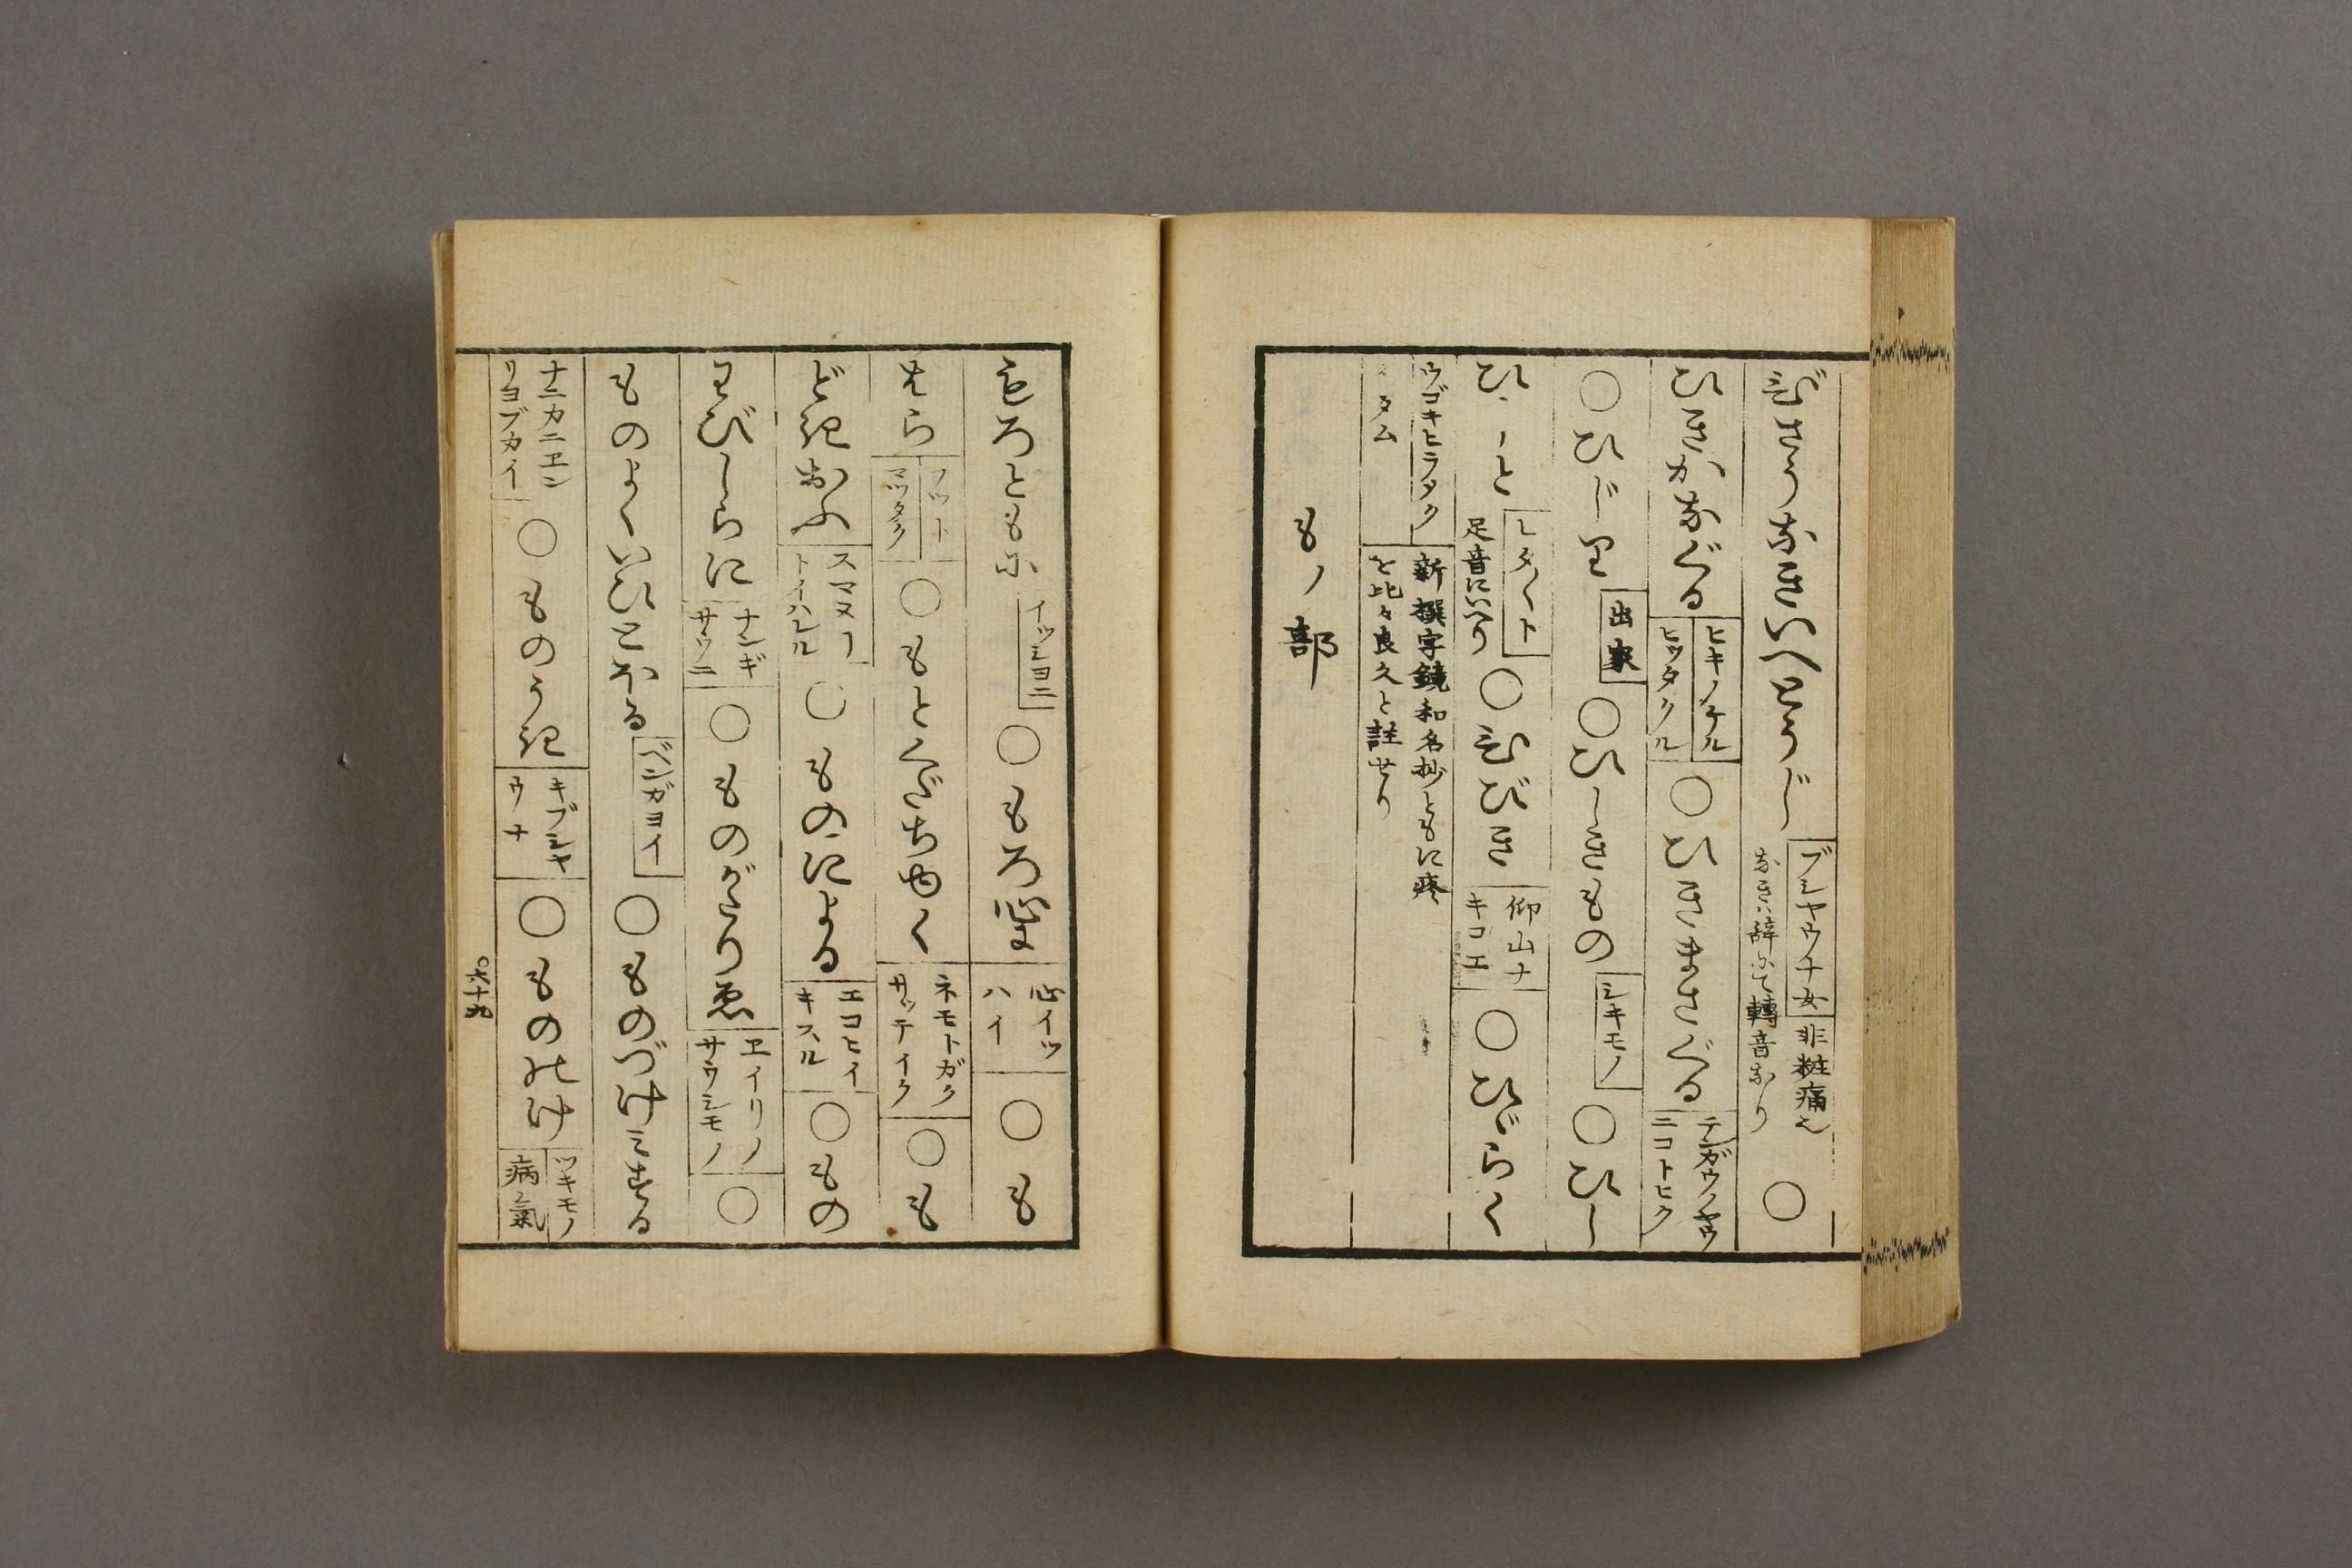 びさうなきいへとうじ ブシヤウナ女 非粧痛也 なきハ辞にて轉音なり ○
ひきかなぐる ヒキノケル ヒツタクル ○ひきまさぐる テンガウノヤウニコトヒク
○ひじり 出家 ○ひしきもの シキモノ ○ひし
ひしと 足音にいへり ○ひびき 仰山ナキコエ ○ひゞらく
ウゴキヒラタク 新撰字鏡和名抄ともに疼を比々良久と註せり
もノ部
もろともに イツシヨニ ○もろ心 心イツハイ ○も
はら フツト マツタク ○もとくだちゆく ネモトガクサツテイク ○も
どきおふ トイハレル ○ものによる エコヒイキスル ○もの
わびしらに ナンギサウニ ○ものがたり恵 ヱイリノサウシモノ ○
ものよくいひとほる ベンガヨイ ○ものづけミする
ナニカニヱンリヨブカイ ○ものうき キブシヤウナ ○ものゝけ ツキモノ 病気
○六十九